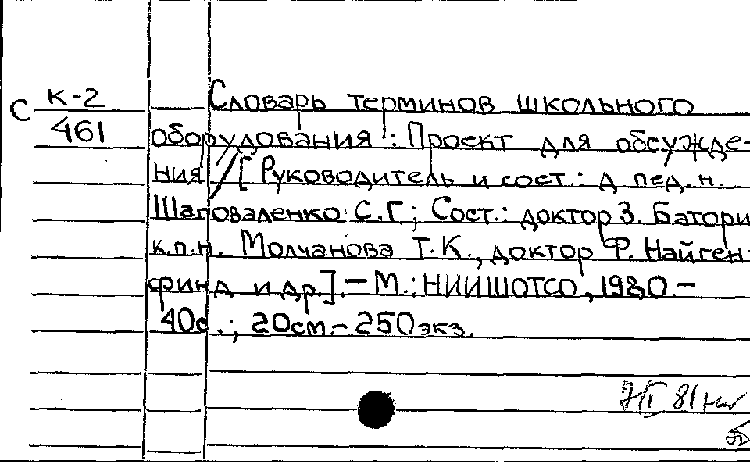 С К-2 Словарь терминов школьного
461 оборудования: Проект для обсужде-
ния / [Руководитель и сост.: д. пед. н.
Шаповаленко С.Г.; Сост.: доктор З. Батори
к.п.н. Молчанова Т.К., доктор Ф. Найген-
финд и др.]. – М.: НИИШОТСО, 1980. –
40с.; 20см. – 250экз.
81